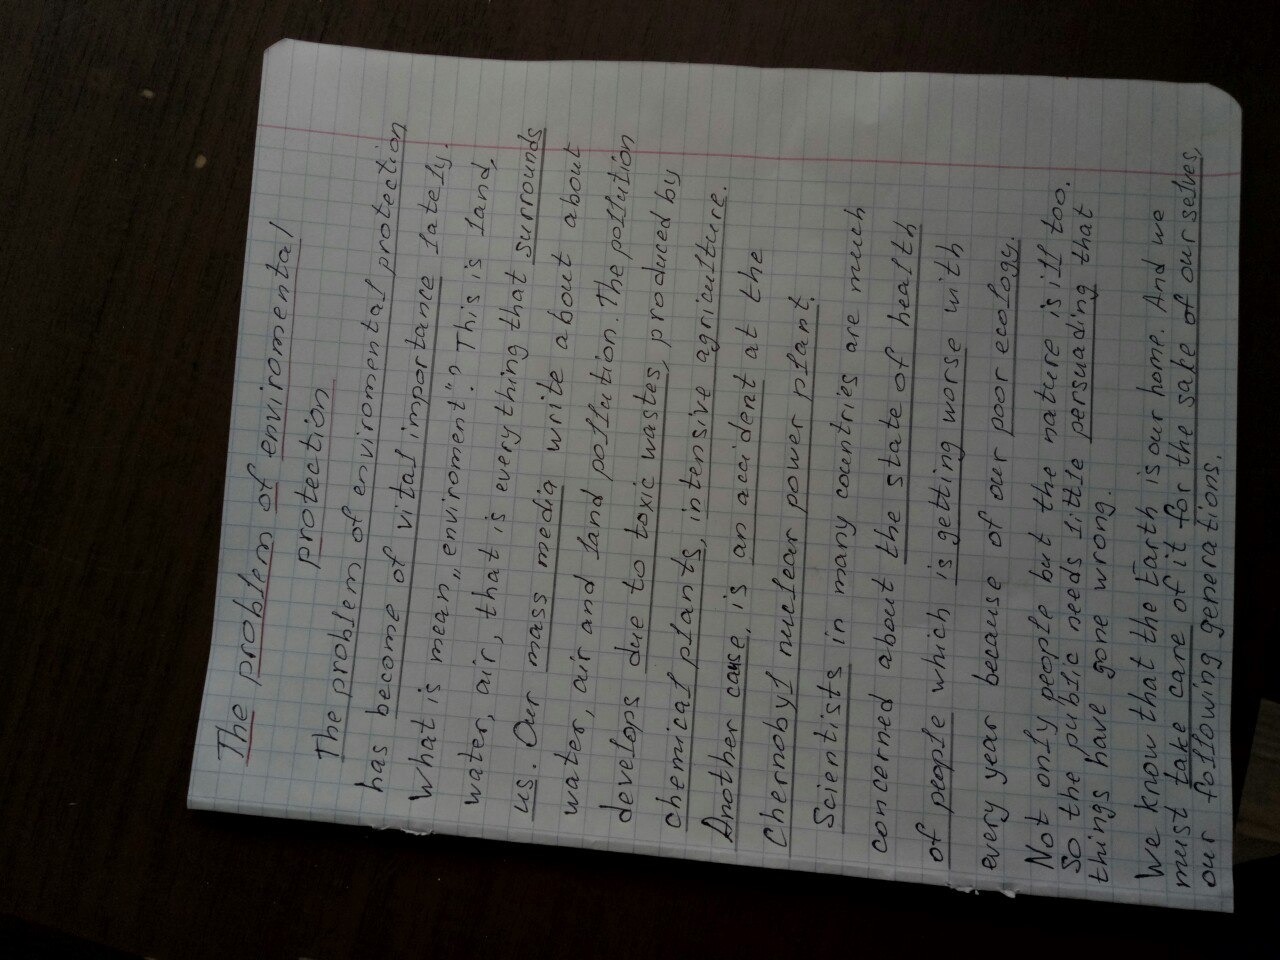 The problem of enviromental
protection
The problem of enviromental protection
has become of vital importance lately.
What is mean „enviroment"? This is land,
water, air, that is everything that surrounds
us. Our mass media write about about
water, air and land pollution. The pollution
develops due to toxic wastes, produced by
chemical plants, intensive agriculture.
Another cause, is an accident at the
Chernobyl nuclear power plant.
Scientists in many countries are much
concerned about the state of health
of people which is getting worse with
every year because of our poor ecology.
Not only people but the nature is ill too.
So the public needs little persuading that
things have gone wrong.
We know that the Earth is our home. And we
must take care of it for the sake of ourselves,
our following generations.